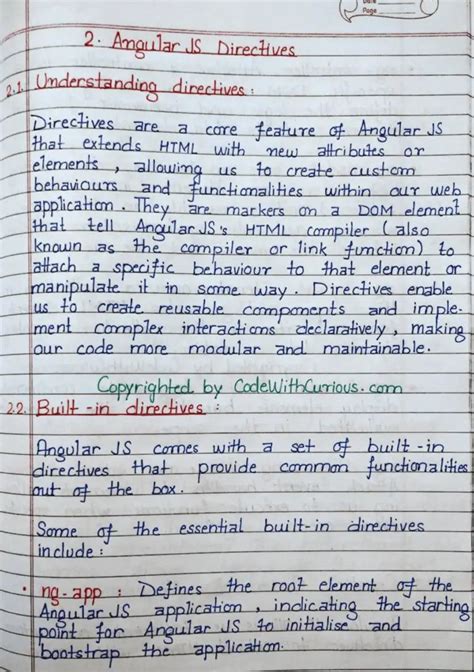 Date
Page
2. Angular JS Directives
2.1. Understanding directives :
Directives are a core feature of Angular JS
that extends HTML with new attributes or
elements , allowing us to create custom
behaviours and functionalities within our web
application. They are markers on a DOM element
that tell Angular JS's HTML compiler ( also
known as the compiler or link function) to
attach a specific behaviour to that element or
manipulate it in some way. Directives enable
us to create reusable components and imple-
ment complex interactions declaratively, making
our code more modular and maintainable.
Copyrighted by CodeWithCurious.com
2.2. Built-in directives :
Angular JS comes with a set of built-in
directives that provide common functionalities
out of the box.
Some of the essential built-in directives
include :
• ng-app : Defines the root element of the
Angular JS application , indicating the starting
point for Angular JS to initialise and
bootstrap the application.